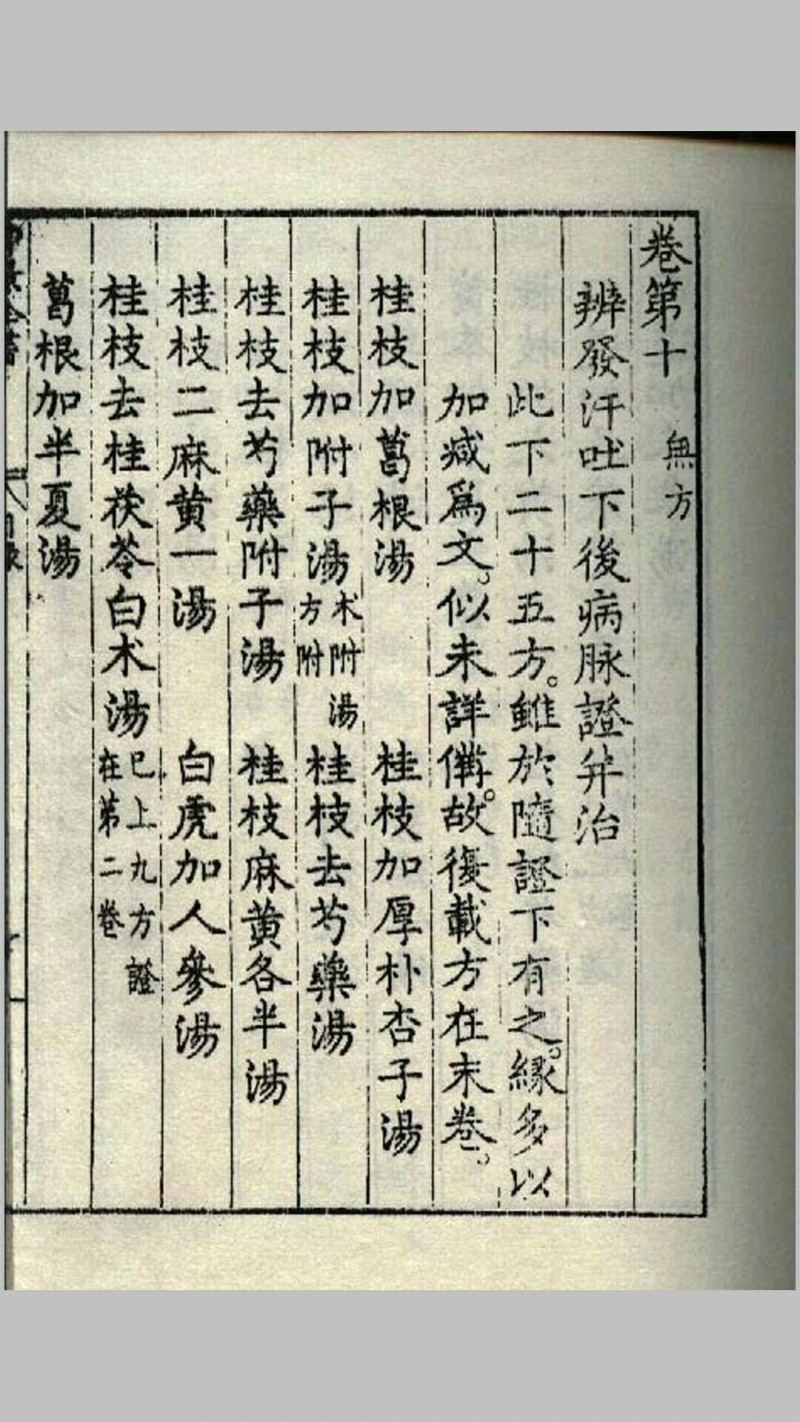 卷第十 無方
辨發汗吐下後病脉證并治
此下二十五方。雖於隨證下有之。緣多以
加減爲文。似未詳備。故復載方在末卷。
桂枝加葛根湯 桂枝加厚朴杏子湯
桂枝加附子湯 术附湯方附 桂枝去芍藥湯
桂枝去芍藥附子湯 桂枝麻黄各半湯
桂枝二麻黄一湯 白虎加人參湯
桂枝去桂茯苓白术湯 已上九方證在第二卷
葛根加半夏湯